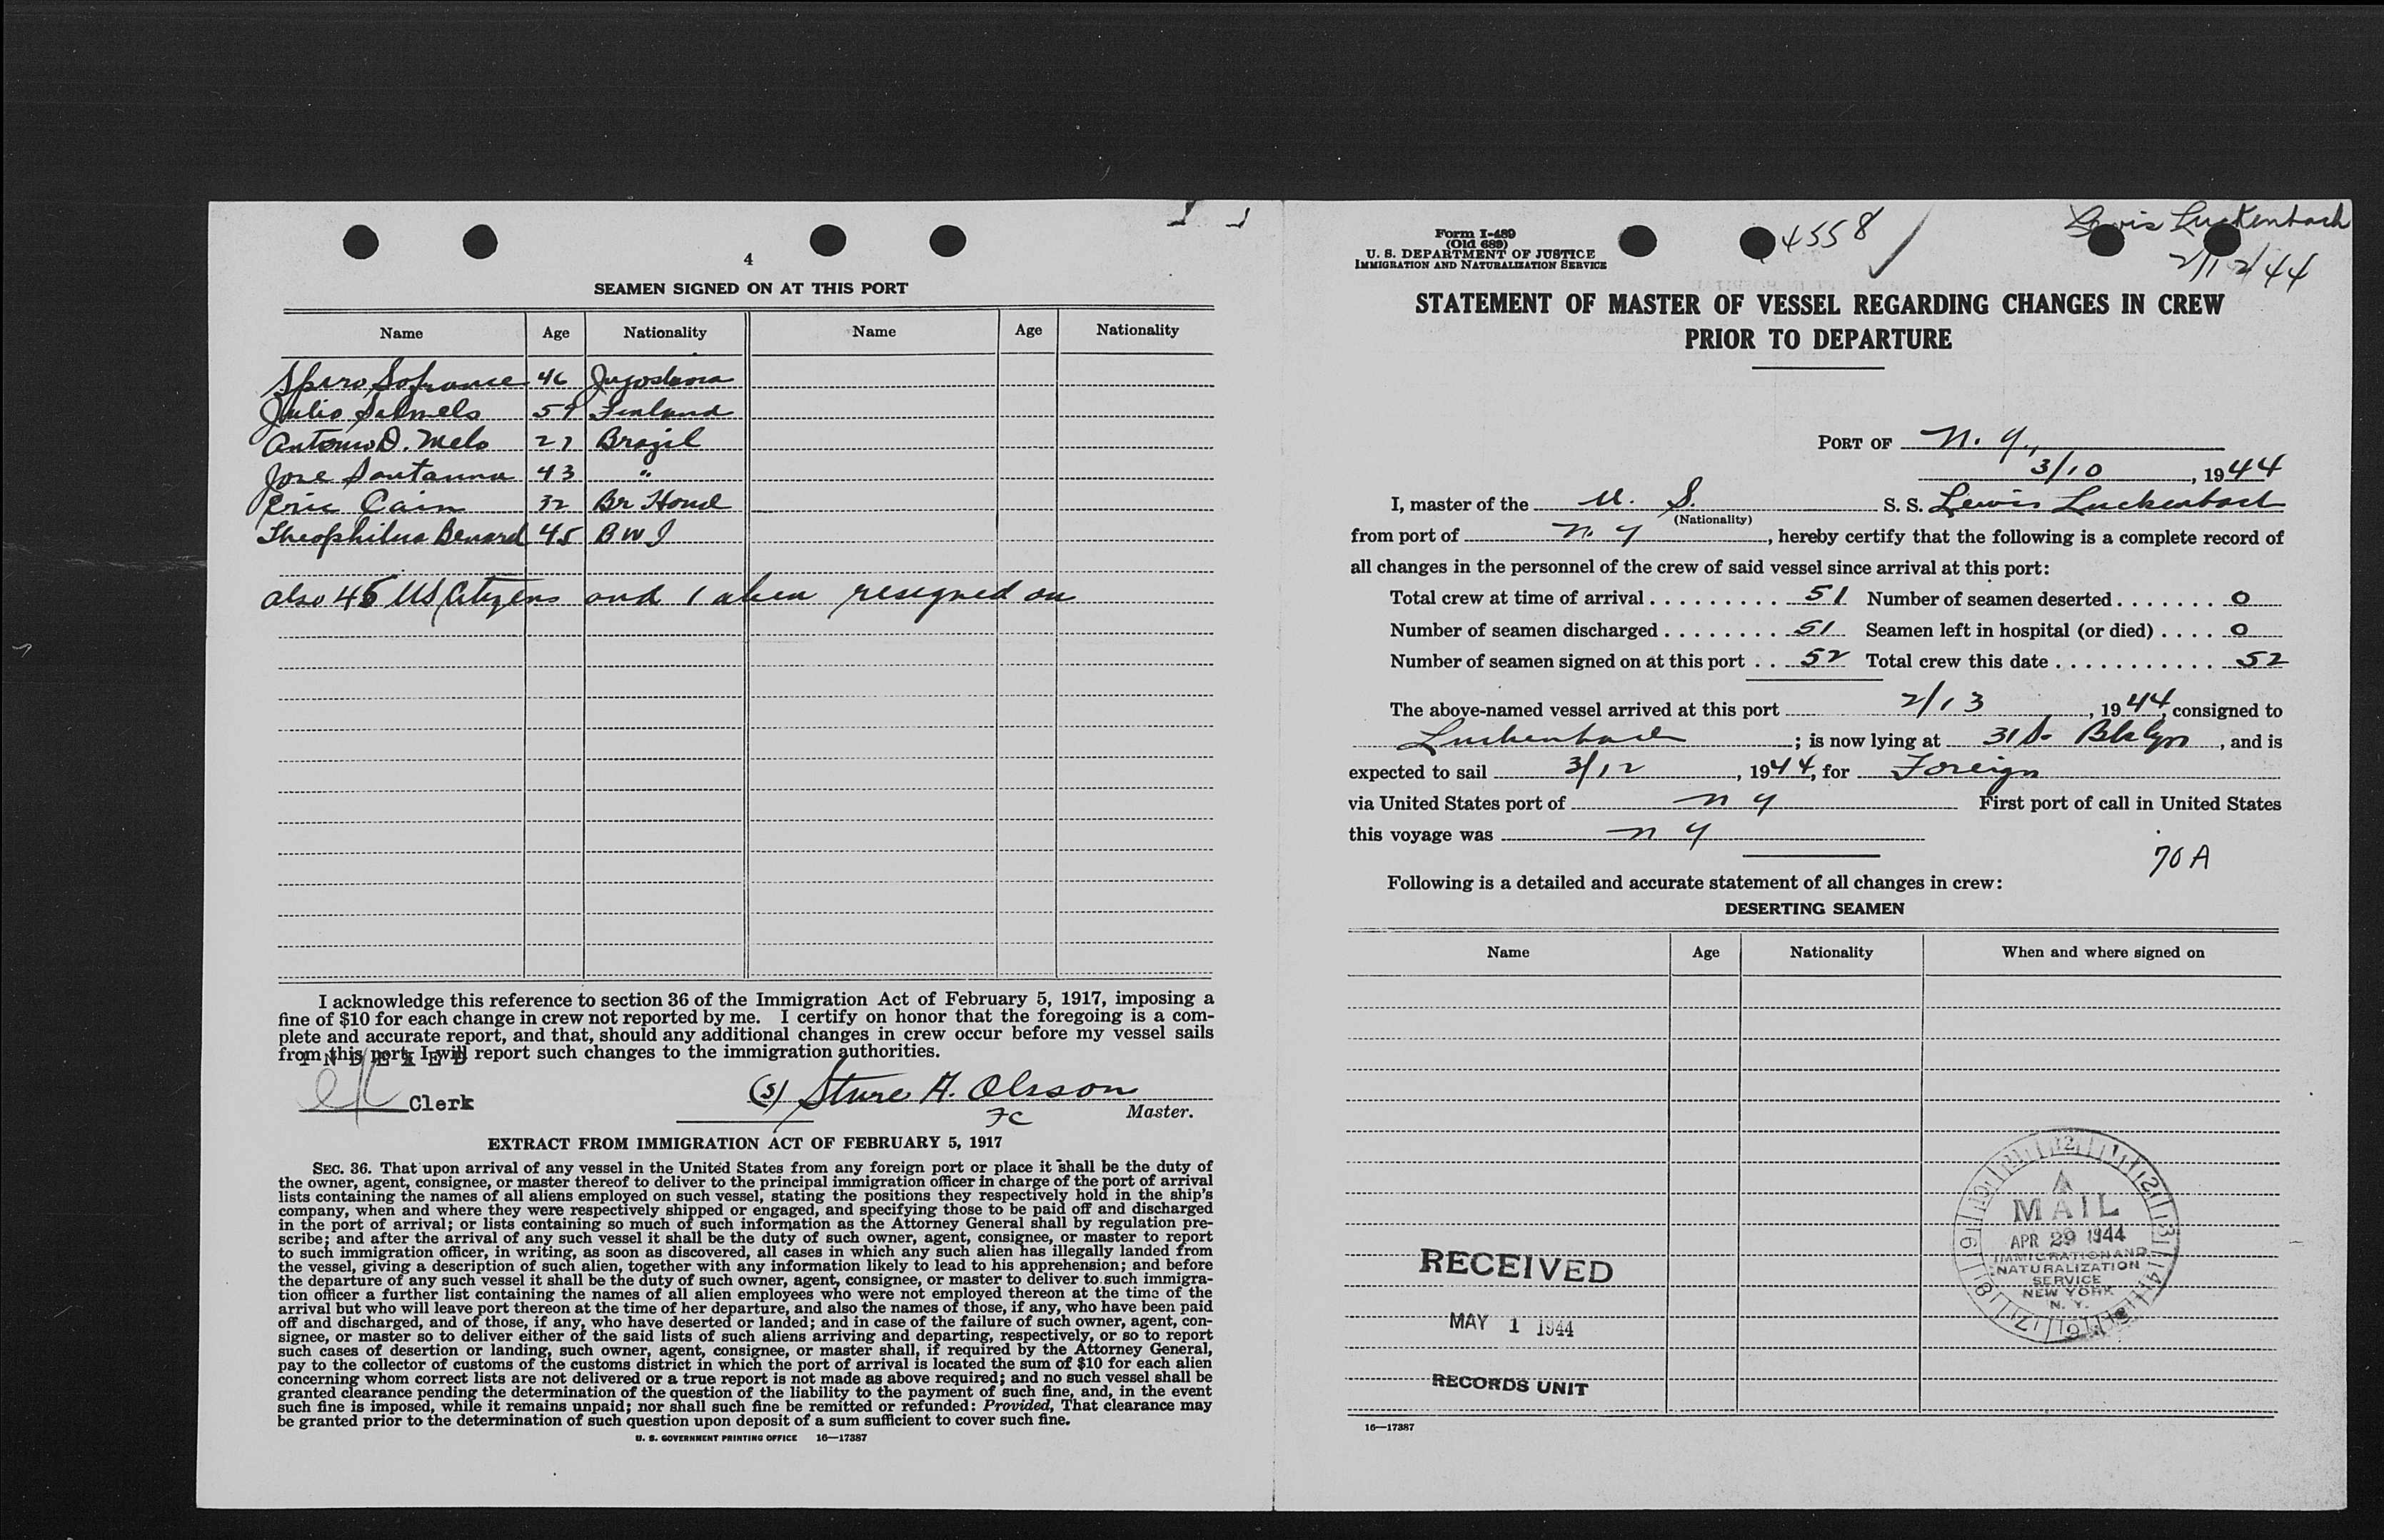 4
SEAMEN SIGNED ON AT THIS PORT
Name Age Nationality Name Age Nationality
Spiro 46
Julio 59 Finland
Antonio D. Melo 27 Brazil
Jose Santanna 43 "
Eric Cain 32 Br Hond
Theophilus Benard 45 B W I
also 45 US Citizens and 1 alien resigned on
I acknowledge this reference to section 36 of the Immigration Act of February 5, 1917, imposing a
fine of $10 for each change in crew not reported by me. I certify on honor that the foregoing is a com-
plete and accurate report, and that, should any additional changes in crew occur before my vessel sails
from this port, I will report such changes to the immigration authorities.
INDEXED
Clerk
(s) Sture A. Olsson
FC
Master.
EXTRACT FROM IMMIGRATION ACT OF FEBRUARY 5, 1917
SEC. 36. That upon arrival of any vessel in the United States from any foreign port or place it shall be the duty of
the owner, agent, consignee, or master thereof to deliver to the principal immigration officer in charge of the port of arrival
lists containing the names of all aliens employed on such vessel, stating the positions they respectively hold in the ship's
company, when and where they were respectively shipped or engaged, and specifying those to be paid off and discharged
in the port of arrival; or lists containing so much of such information as the Attorney General shall by regulation pre-
scribe; and after the arrival of any such vessel it shall be the duty of such owner, agent, consignee, or master to report
to such immigration officer, in writing, as soon as discovered, all cases in which any such alien has illegally landed from
the vessel, giving a description of such alien, together with any information likely to lead to his apprehension; and before
the departure of any such vessel it shall be the duty of such owner, agent, consignee, or master to deliver to such immigra-
tion officer a further list containing the names of all alien employees who were not employed thereon at the time of the
arrival but who will leave port thereon at the time of her departure, and also the names of those, if any, who have been paid
off and discharged, and of those, if any, who have deserted or landed; and in case of the failure of such owner, agent, con-
signee, or master so to deliver either of the said lists of such aliens arriving and departing, respectively, or so to report
such cases of desertion or landing, such owner, agent, consignee, or master shall, if required by the Attorney General,
pay to the collector of customs of the customs district in which the port of arrival is located the sum of $10 for each alien
concerning whom correct lists are not delivered or a true report is not made as above required; and no such vessel shall be
granted clearance pending the determination of the question of the liability to the payment of such fine, and, in the event
such fine is imposed, while it remains unpaid; nor shall such fine be remitted or refunded: Provided, That clearance may
be granted prior to the determination of such question upon deposit of a sum sufficient to cover such fine.
U. S. GOVERNMENT PRINTING OFFICE 16—17387
Form I-489
(Old 689)
U. S. DEPARTMENT OF JUSTICE
IMMIGRATION AND NATURALIZATION SERVICE
4558
Lewis Luckenbach
2/12/44
STATEMENT OF MASTER OF VESSEL REGARDING CHANGES IN CREW
PRIOR TO DEPARTURE
PORT OF N. Y.,
3/10, 1944
I, master of the U. S. S. S. Lewis Luckenbach
(Nationality)
from port of N Y, hereby certify that the following is a complete record of
all changes in the personnel of the crew of said vessel since arrival at this port:
Total crew at time of arrival 51 Number of seamen deserted 0
Number of seamen discharged 51 Seamen left in hospital (or died) 0
Number of seamen signed on at this port 52 Total crew this date 52
The above-named vessel arrived at this port 2/13, 1944, consigned to
Luckenbach; is now lying at 31 St Bklyn, and is
expected to sail 3/12, 1944, for Foreign
via United States port of N Y First port of call in United States
this voyage was N Y
70 A
Following is a detailed and accurate statement of all changes in crew:
DESERTING SEAMEN
Name Age Nationality When and where signed on
RECEIVED
MAY 1 1944
RECORDS UNIT
MAIL
APR 29 1944
IMMIGRATION AND
NATURALIZATION
SERVICE
NEW YORK
N. Y.
16—17387